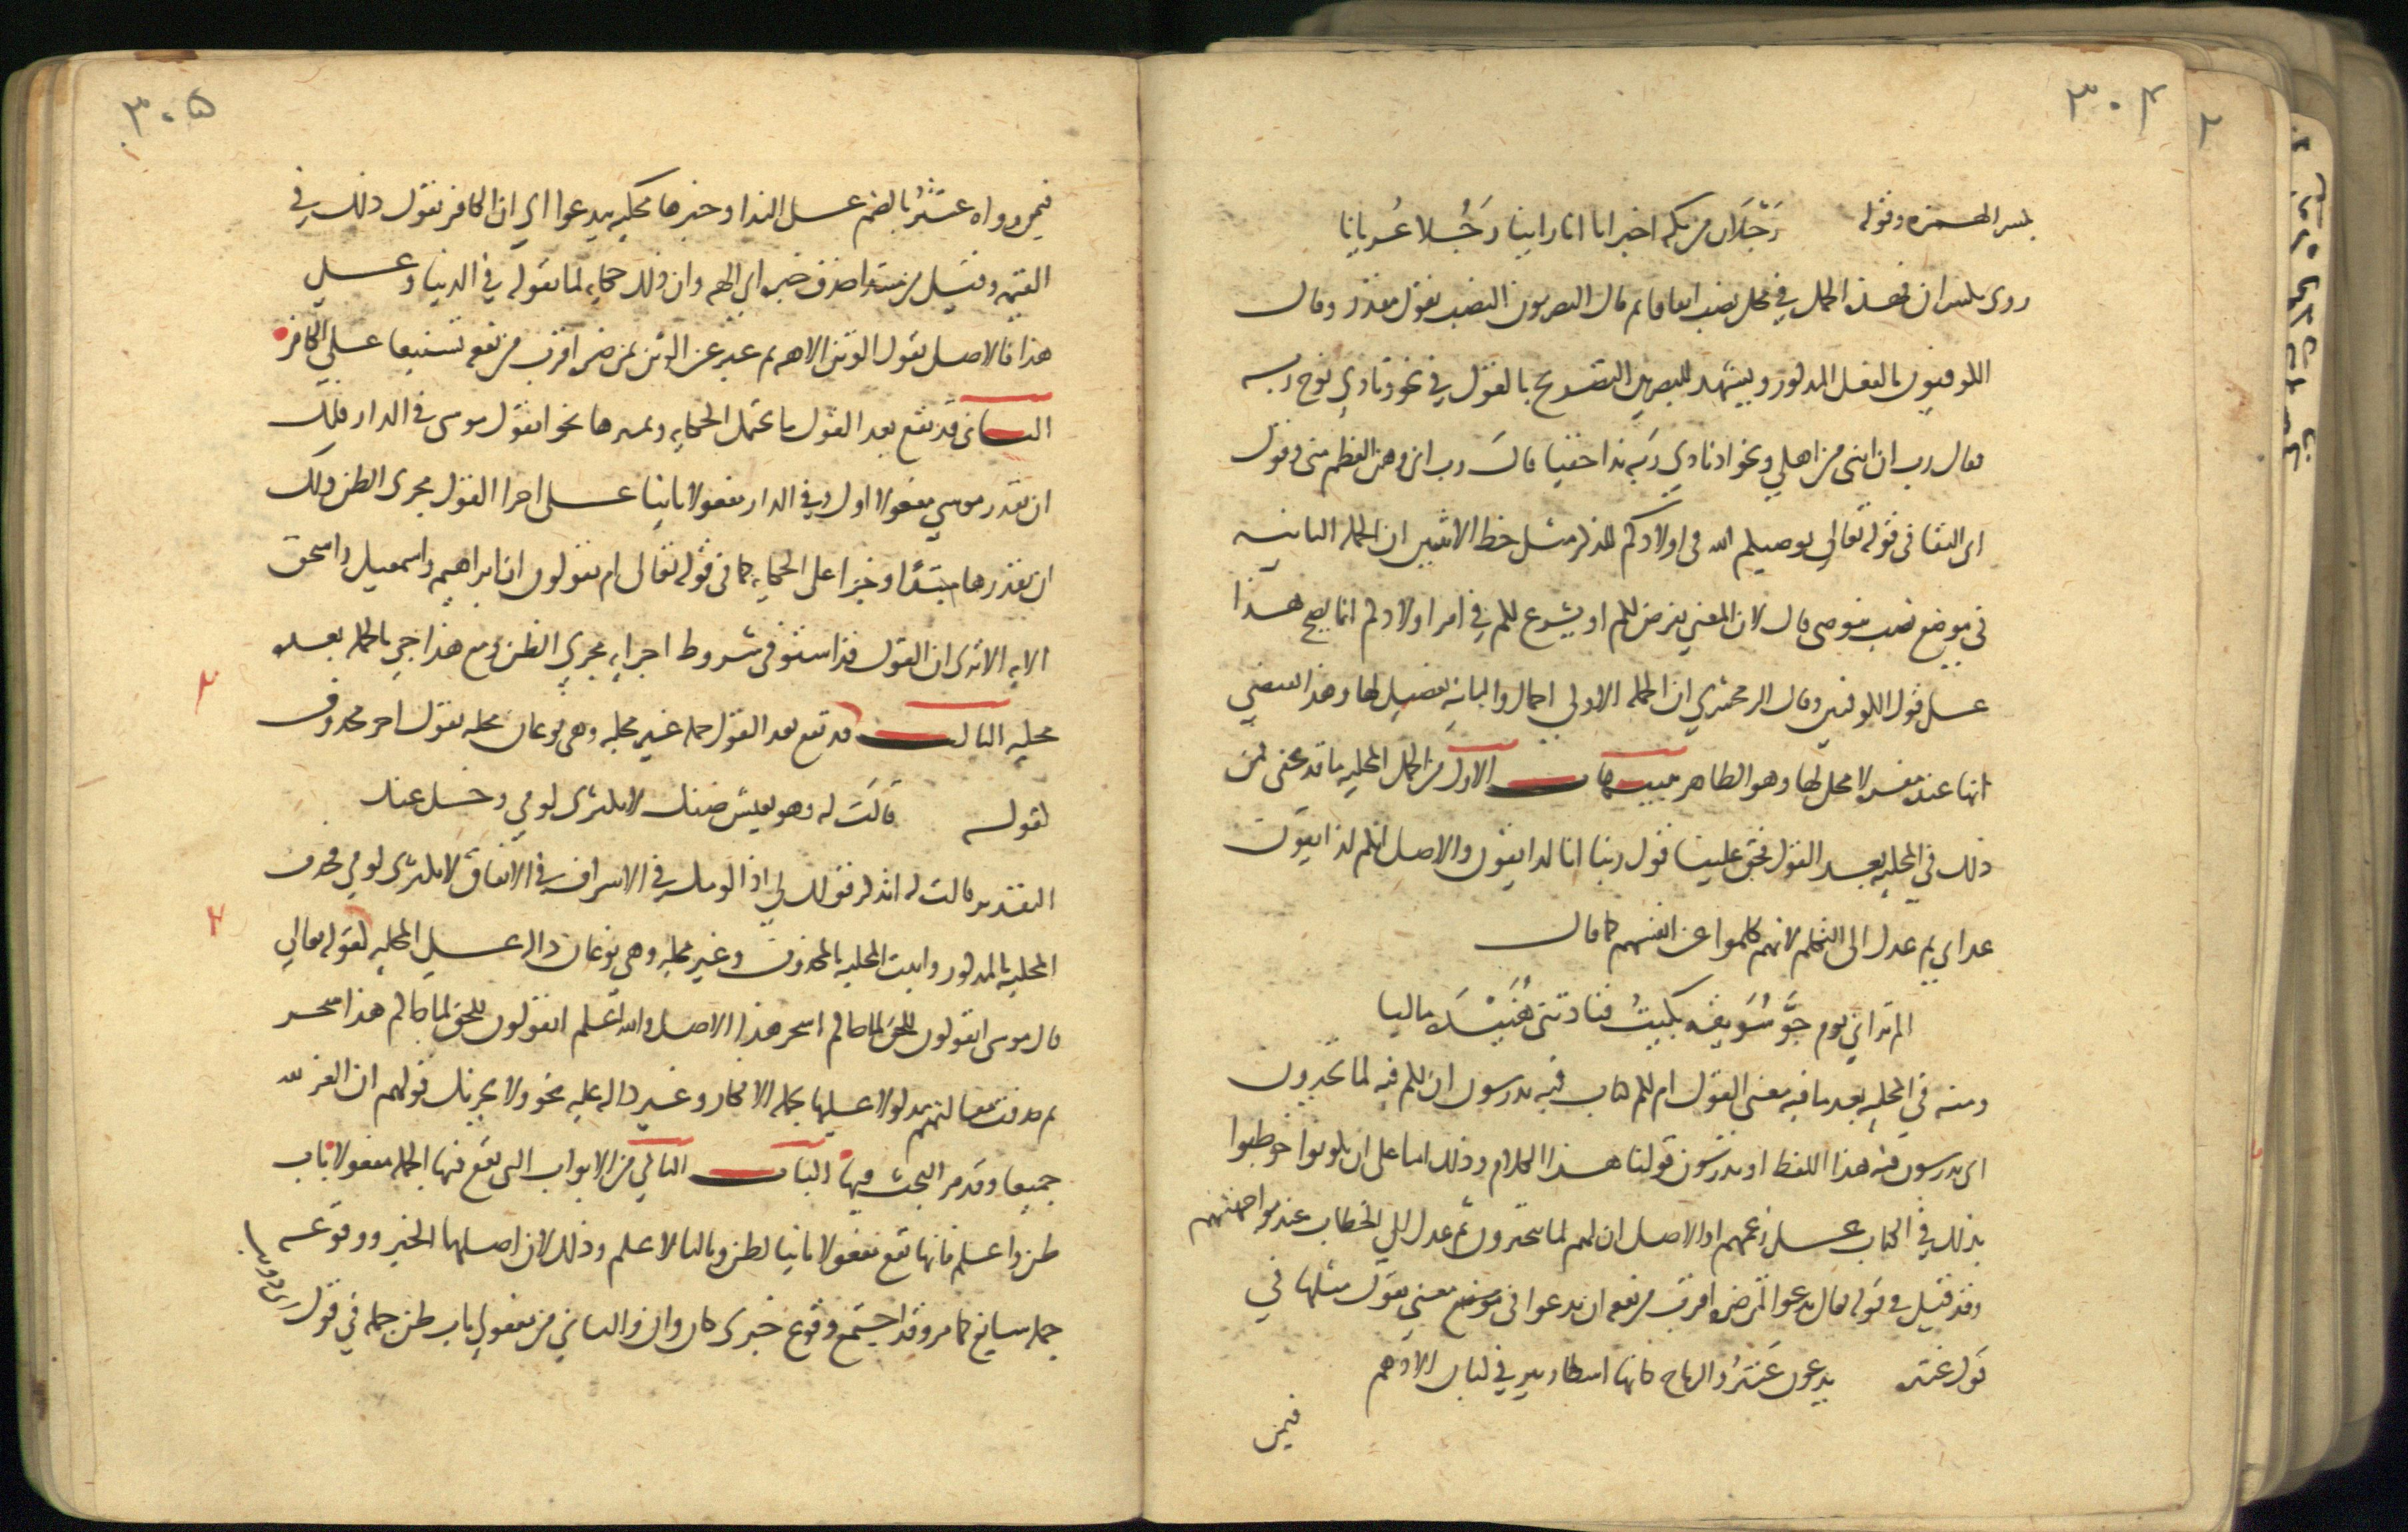 ٣٠٤
بكسر الهمزه وقوله رَجْلَان من مكه اخبرانا انا راينا رَجُلا عُريانا
روى بكسر ان فهذه الجمل في محل نصب اتفاقا ثم قال البصريون النصب بقول مقدر وقال
الكوفيون بالفعل المذكور ويشهد للبصريين التصريح بالقول في نحو ونادي نوح ربه
فقال رب ان ابنى من اهلي ونحو اذ نادي ربه ندا خفيا قال رب انى وهن العظم منى وقول
ابى البقا فى قوله تعالي يوصيكم الله فى اولادكم للذكر مثل حظ الانثيين ان الجمله الثانيه
فى موضع نصب بيوصى قال لان المعني يفرض لكم او يشرع لكم في امر اولادكم انما يصح هذا
على قول الكوفيين وقال الزمخشري ان الجمله الاولي اجمال والثانيه تفصيل لها وهذا يقتضي
انها عنده مفسره لا محل لها وهو الظاهر تنبيهات الاول من الجمل المحكيه ما قد يخفى فمن
ذلك في المحكيه بعد القول فحق علينا قول ربنا انا لذايقون والاصل انكم لذايقون
عدابي ثم عدل الى التكلم لانهم تكلموا عن انفسهم كما قال
الم تر اني يوم جَوِّ سُوَيقه بكيتُ فنادتنى هُنَيْدَه ماليا
ومنه في المحكيه بعد ما فيه معنى القول ام لكم كتاب فيه تدرسون ان لكم فيه لما تخيرون
اى تدرسون فيه هذا اللفظ او تدرسون قولنا هذا الكلام وذلك اما على ان يكونوا خوطبوا
بذلك في الكتاب على زعمهم او الاصل ان لهم لما يتخيرون ثم عدل الي الخطاب عند مواجهتهم
وقد قيل في قوله تعال يدعوا لمن ضره اقرب من نفعه ان يدعوا فى موضع معني يقول مثلها في
قول عنتره يدعون عَنْتَرُ والرماح كانها اشطان بير في لبان الادهم
فيمن
٣٠٥
فيمن رواه عنتَرُ بالضم على الندا وخبرها محكيه بيدعوا اي ان الكافر يقول ذلك في
القيمه وقيل من مبتدا حذف خبره اي الهه وان ذلك حكايه لما يقوله في الدنيا وعلي
هذا فالاصل يقول الوثن الاهه ثم عبر عن الوثن بمن ضره اقرب من نفعه تشنيعا على الكافر
الثانى قد يقع بعد القول ما يحتمل الحكايه وغيرها نحو اتقول موسى في الدار فلك
ان تقدر موسي مفعولا اول وفى الدار مفعولا ثانيا على اجرا القول مجرى الظن ولك
ان تقدرها مبتدًا وخبرا على الحكايه كما فى قوله تعالى ام تقولون ان ابراهيم واسمعيل واسحق
الايه الا ترى ان القول قد استوفى شروط اجرايه مجري الظن ومع هذا جي بالجمله بعده
محكيه الثالث قد تقع بعد القول جمله غير محكيه وهى نوعان محكيه بقول اخر محذوف
كقوله قالَت له وهو بعيش ضنك لا تكثرى لومي وخلى عنك
التقدير قالت له اتذكر قولك لي اذ الومك في الاسراف في الانفاق لا تكثري لومي فحذف
المحكيه بالمذكور واثبت المحكيه بالمحذوف وغير محكيه وهي نوعان داله على المحكيه كقوله تعالي
قال موسى اتقولون للحق لما جاكم اسحر هذا الاصل والله اعلم اتقولون للحق لما جاكم هذا سحر
ثم حذفت مقالتهم مدلولا عليها بجمله الانكار وغير داله عليه نحو ولا يحزنك قولهم ان العزه لله
جميعا وقد مر البحث فيها الباب الثاني من الابواب التى تقع فيها الجمله مفعولا باب
ظن واعلم فانها تقع مفعولا ثانيا لظن وثالثا لاعلم وذلك لان اصلهما الخبر ووقوعه
جمله سايغ كما مر وقد اجتمع وقوع خبرى كان وان والثاني من مفعولي باب ظن جمله في قول